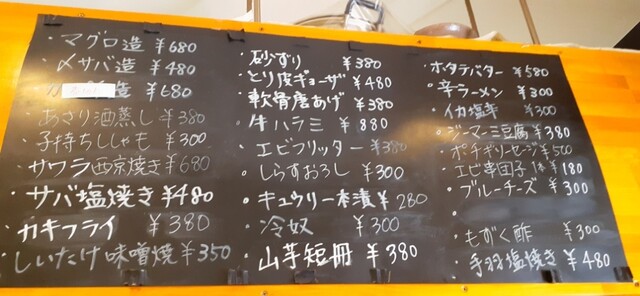 ・マグロ造 ¥680
・〆サバ造 ¥480
造 ¥680
・あさり酒蒸し ¥380
・子持ちししゃも ¥300
・サワラ西京焼き ¥680
・サバ塩焼き ¥480
・カキフライ ¥380
・しいたけ味噌焼 ¥350
・砂ずり ¥380
・とり皮ギョーザ ¥480
・軟骨唐あげ ¥380
・牛ハラミ ¥880
・エビフリッター ¥380
・しらすおろし ¥300
・キュウリ一本漬 ¥280
・冷奴 ¥300
・山芋短冊 ¥380
・ホタテバター ¥580
・辛ラーメン ¥300
・イカ塩辛 ¥300
・ジーマーミ豆腐 ¥380
・ポチギリセージ ¥500
・エビ串団子 1本 ¥180
・ブルーチーズ ¥300
・もずく酢 ¥300
・手羽塩焼き ¥480